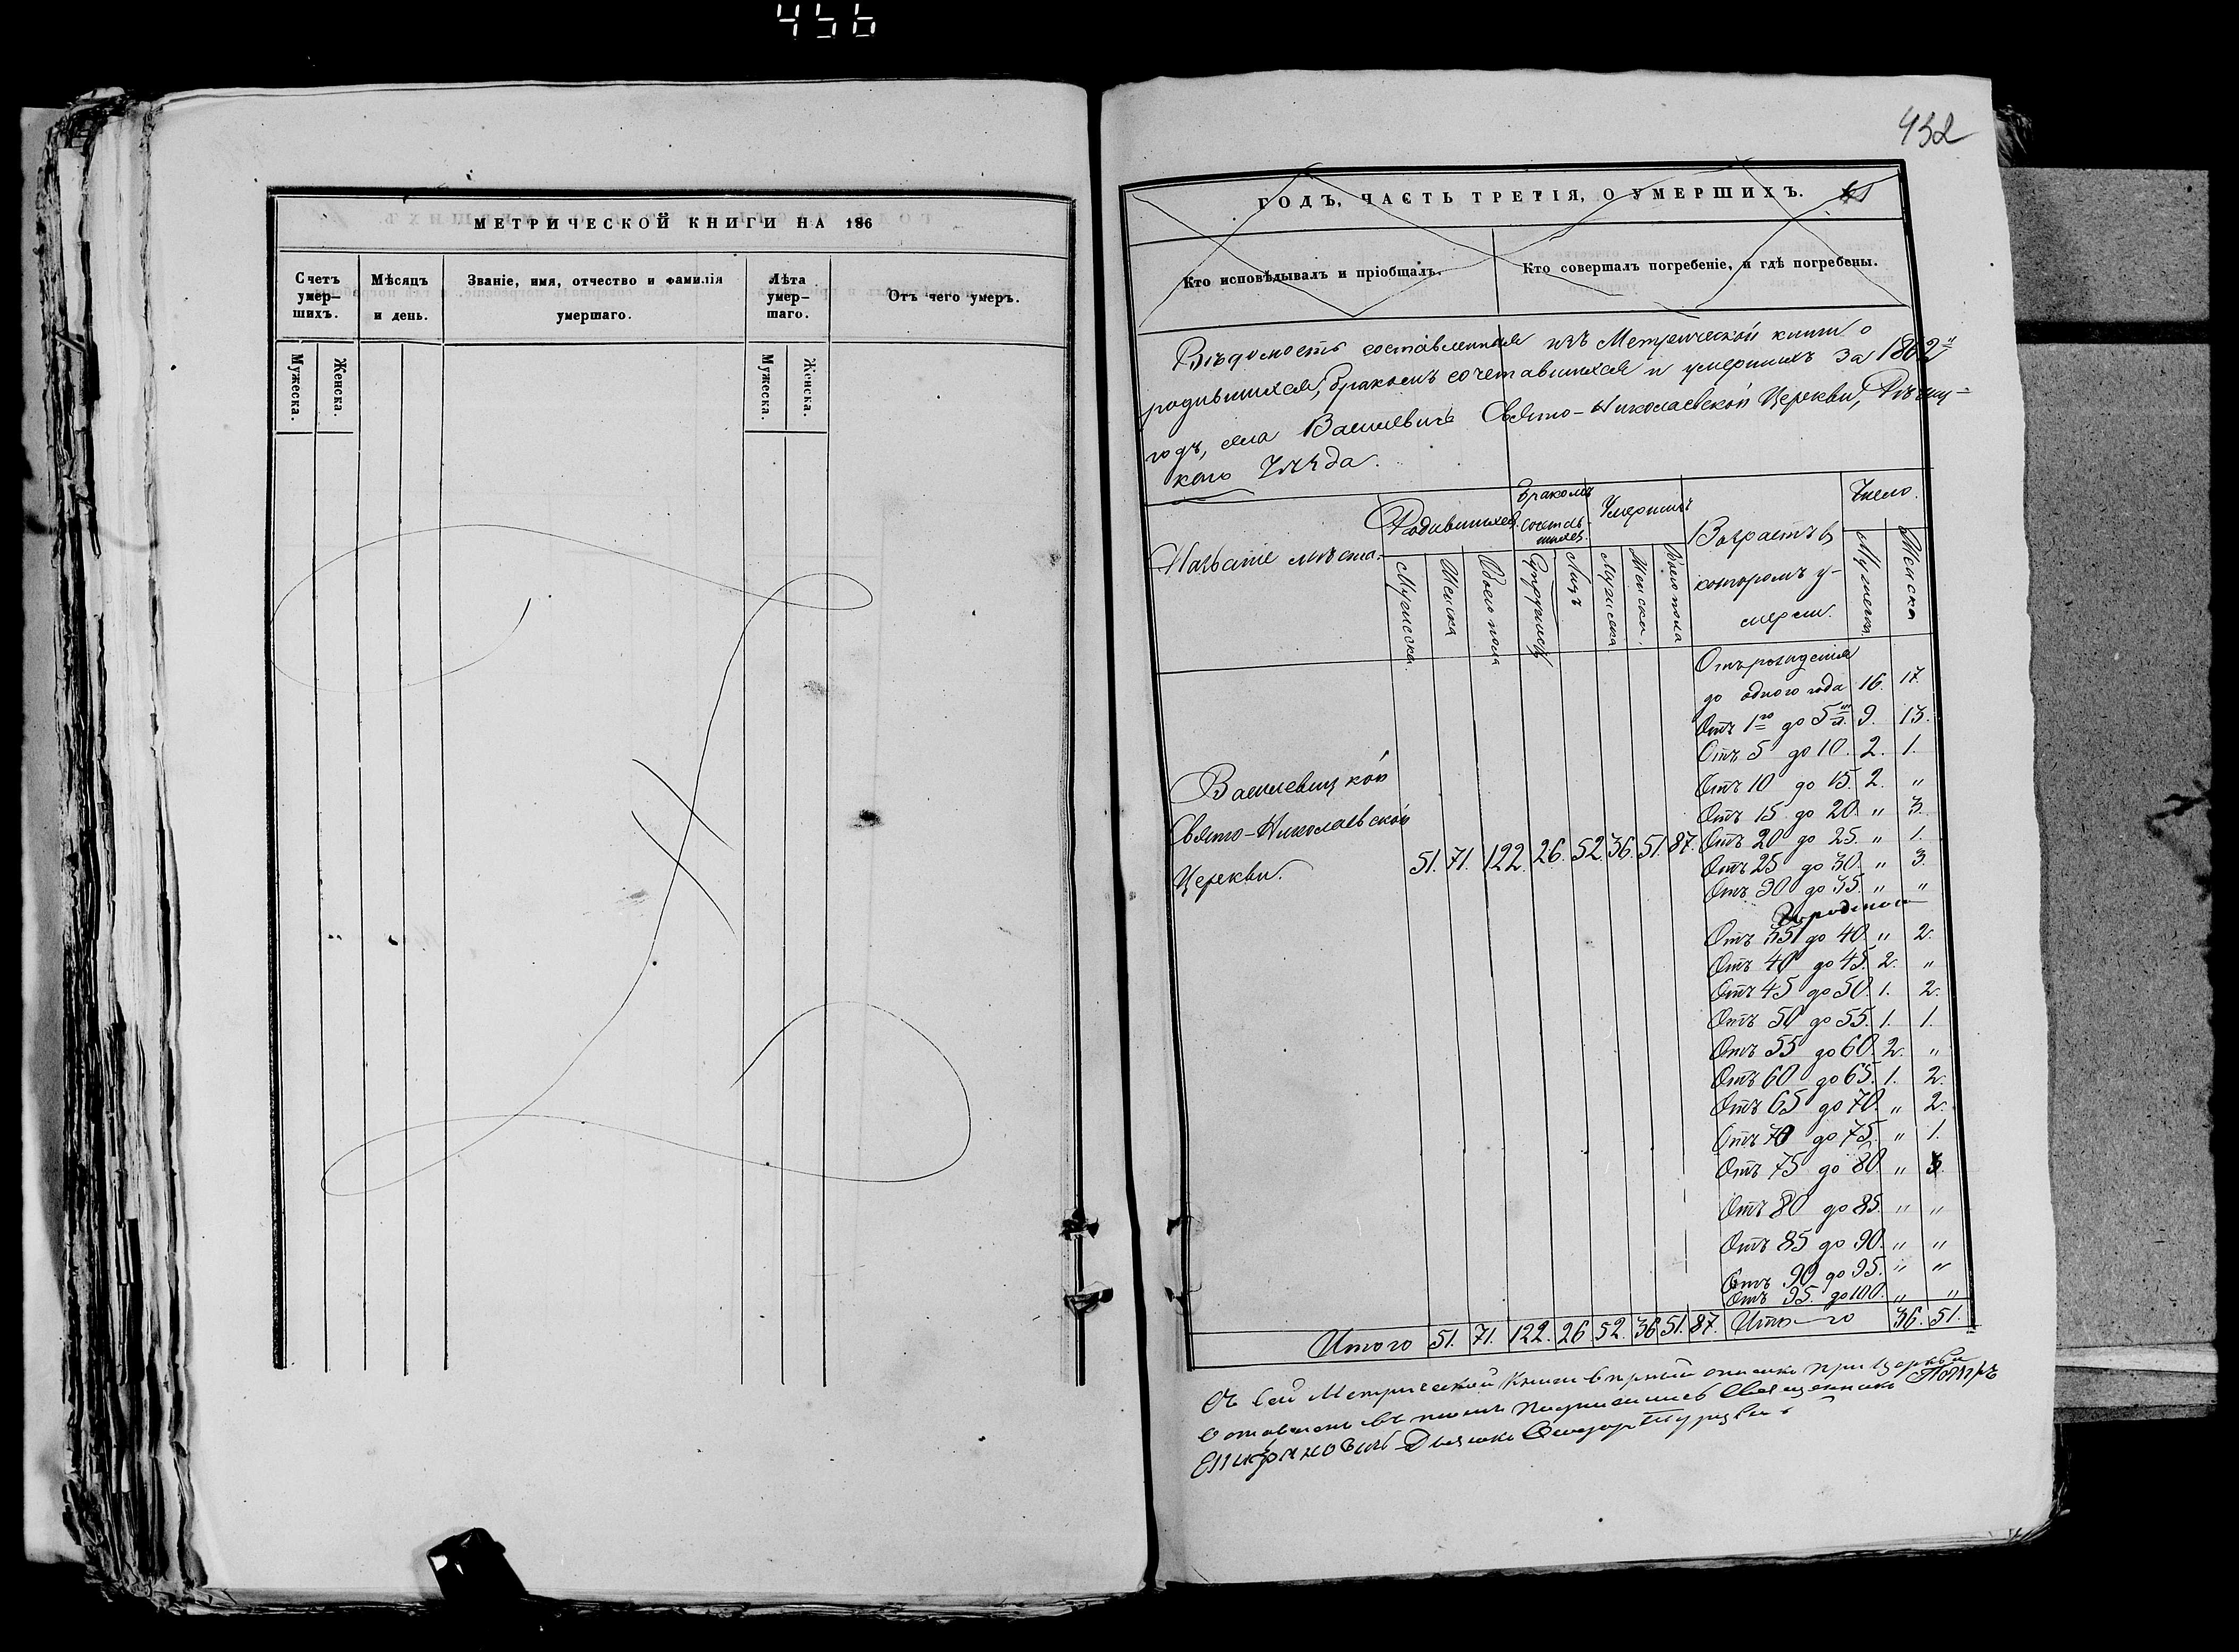 456
МЕТРИЧЕСКОЙ КНИГИ НА 186
Счетъ умер– шихъ.
Мѣсяцъ и день.
Званіе, имя, отчество и фамилія умершаго.
Лѣта умер– шаго.
Отъ чего умеръ.
Мужеска.
Женска.
Мужеска.
Женска.
432
ГОДЪ, ЧАСТЬ ТРЕТІЯ, О УМЕРШИХЪ.
Кто исповѣдывалъ и пріобщалъ.
Кто совершалъ погребеніе, и гдѣ погребены.
Вѣдомость составленная изъ Метрической книги о
родившихся, бракомъ сочетавшихся и умершихъ за 1862й
годъ, села Василевичъ Свято-Николаевской Церкви, Рѣчиц=
каго Уѣзда.
Названіе мѣста.
Родившихся.
Бракомъ сочетав- шихся.
Умершихъ
Возрастъ въ
которомъ у-
мерли.
Число.
Мужеска
Женска
Обоего пола
Супружествъ
Лицъ
Мужеска
Женска.
Обоего пола
Мужеска
Женска
Отъ рожденія
до одного года 16. 17.
Отъ 1го до 5ти л. 9. 13.
Отъ 5 до 10. 2. 1.
Отъ 10 до 15. 2. „
Отъ 15 до 20. „ 3.
Василевицкой
Свято-Николаевской
Церкви. 51. 71. 122. 26. 52. 36. 51. 87.
Отъ 20 до 25. „ 1.
Отъ 25 до 30. „ 3.
Отъ 30 до 35. „ „
Отъ 35 до 40. „ 2.
Отъ 40 до 45. 2. „
Отъ 45 до 50. 1. 2.
Отъ 50 до 55. 1. 1.
Отъ 55 до 60. 2. „
Отъ 60 до 65. 1. 2.
Отъ 65 до 70. „ 2.
Отъ 70 до 75. „ 1.
Отъ 75 до 80. „ 3.
Отъ 80 до 85. „ „
Отъ 85 до 90. „ „
Отъ 90 до 95. „ „
Отъ 95. до 100. „ „
Итого 51. 71. 122. 26 52. 36 51. 87. Итого 36. 51.
Къ сей Метрической Книги при Церкви
въ томъ подписались Священникъ Петръ
Дьячокъ Ѳеодоръ